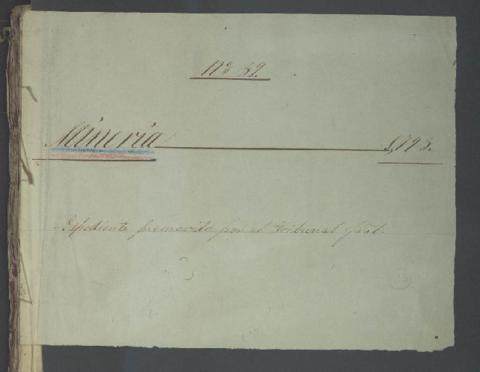 No 39.
Mineria 1793.
Expediente promovido por el Tribunal Gral.